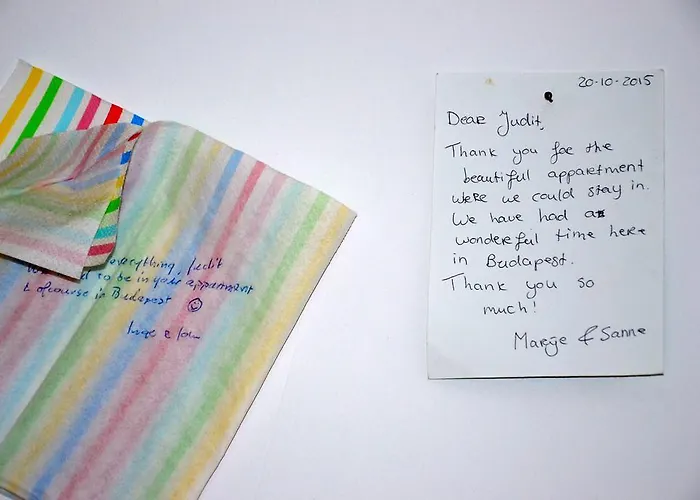 everything, Judit
to be in your appartment
& ofcourse in Budapest ☺
20-10-2015
Dear Judit,
Thank you for the
beautiful appartment
were we could stay in.
We have had a
wonderful time here
in Budapest.
Thank you so
much!
Marije & Sanne